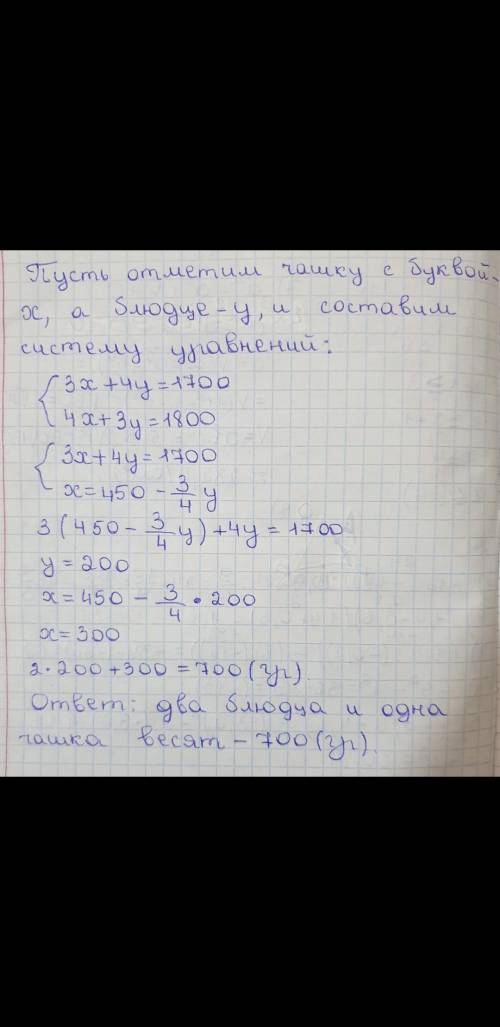 Пусть отметим чашку с буквой-
x, а блюдце-y, и составим
систему уравнений:
3x+4y=1700
4x+3y=1800
3x+4y=1700
x=450-3/4y
3(450-3/4y)+4y=1700
y=200
x=450-3/4•200
x=300
2•200+300=700(гр).
Ответ: два блюдца и одна
чашка весят-700(гр).